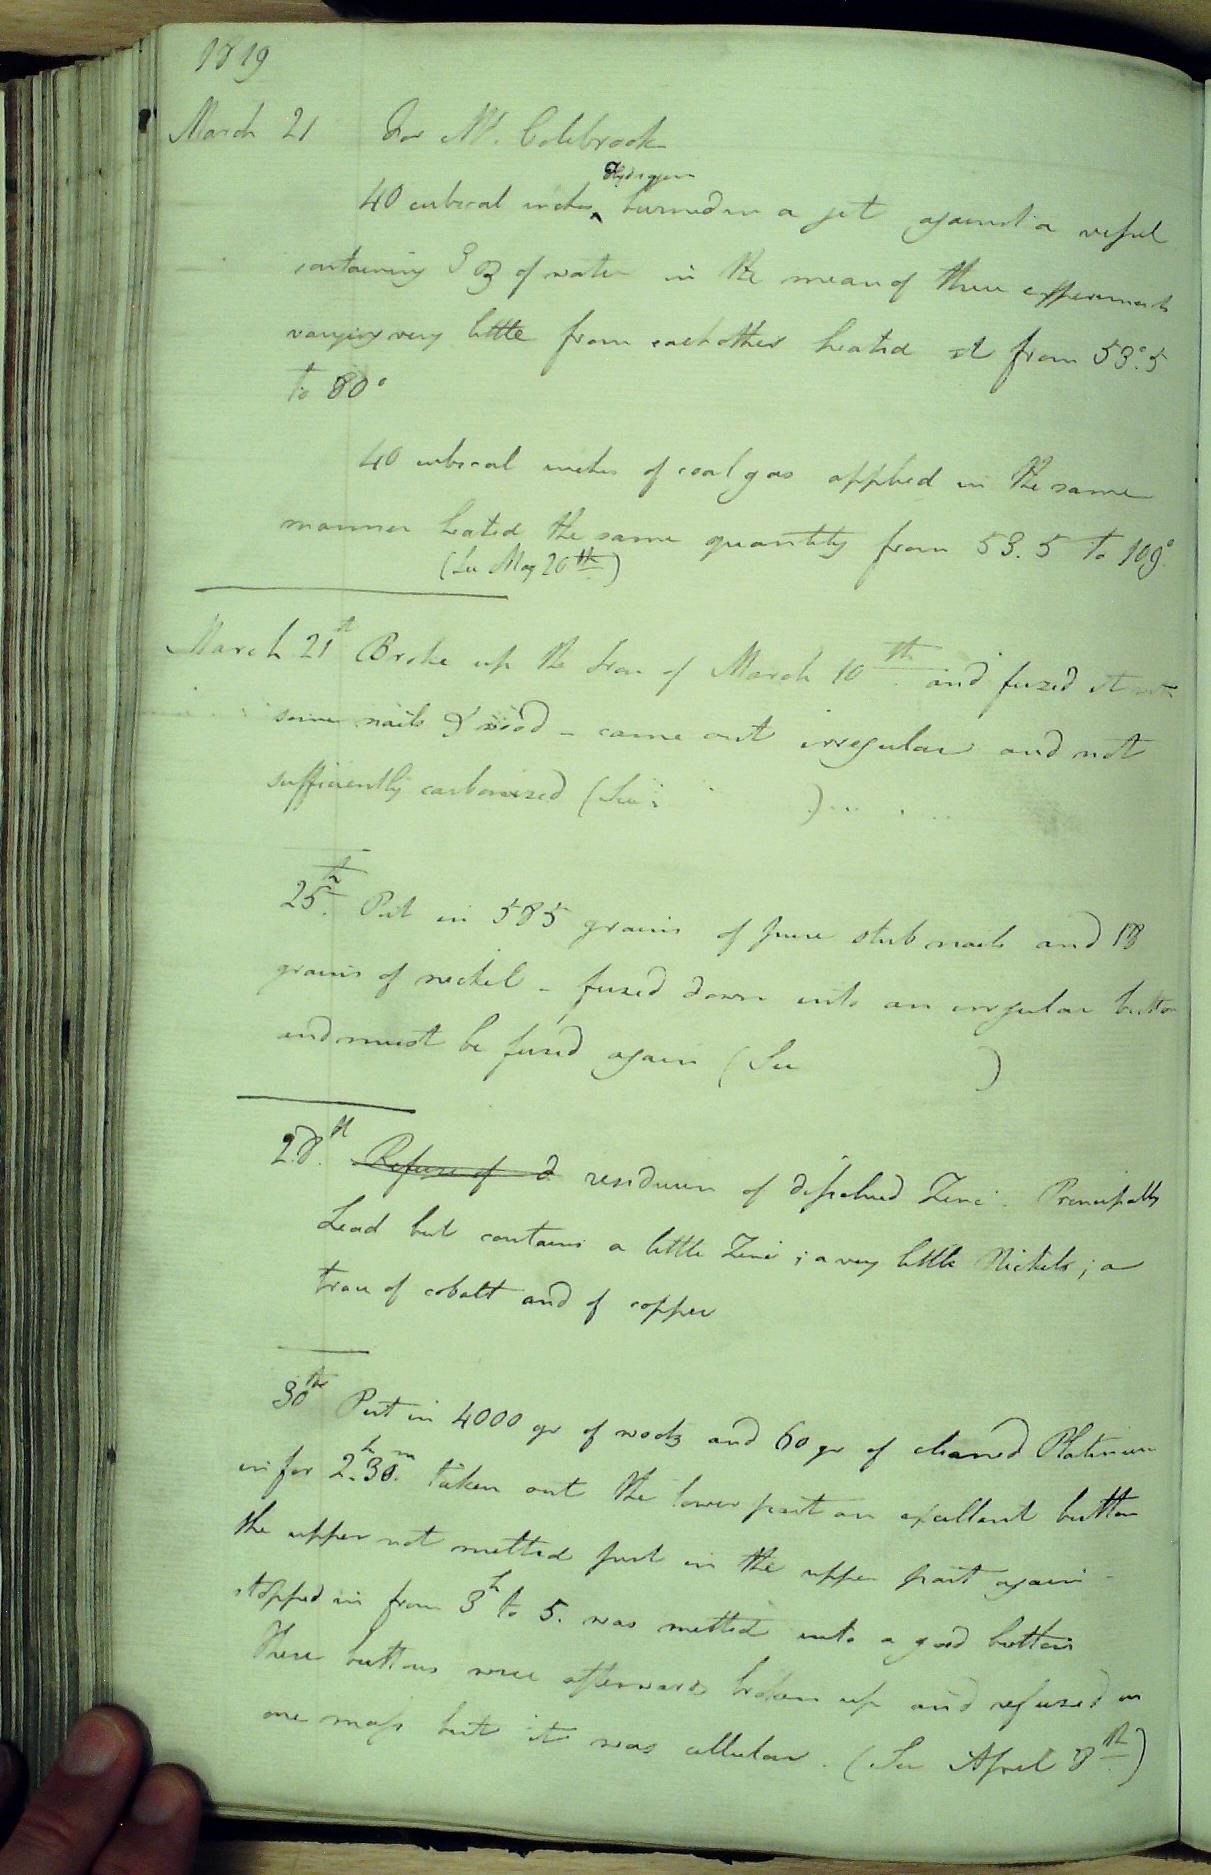 1819
March 21 For Mr. Colebrook
Hydrogen
40 cubical inches ^ burned in a jet against a vessel
containing 3 oz of water in the mean of three experiments
varying very little from each other heated it from 53°.5
to 80°
40 cubical inches of coal gas applied in the same
manner heated the same quantity from 53.5 to 109°.
(See May 20th)
March 21st Broke up the Iron of March 10th and fuzed it with
some nails & wood – came out irregular and not
sufficiently carbonized (See )
25th. Put in 585 grains of pure stub nails and 18
grains of nickel – fuzed down into an irregular button
and must be fuzed again (See )
28.th Refuse of d residuum of dissolved Zinc. Principally
Lead but contains a little Zinc; a very little Nickel; a
trace of cobalt and of copper
30th Put in 4000 gr of wootz and 60 gr of cleaned Platinum
in for 2h.30m. taken out the lower part an excellent button
the upper not melted put in the upper part again –
stopped in from 3h to 5. was melted into a good button
These buttons were afterwards broken up and refused in
one mass but it was cellular. (See April 8th)